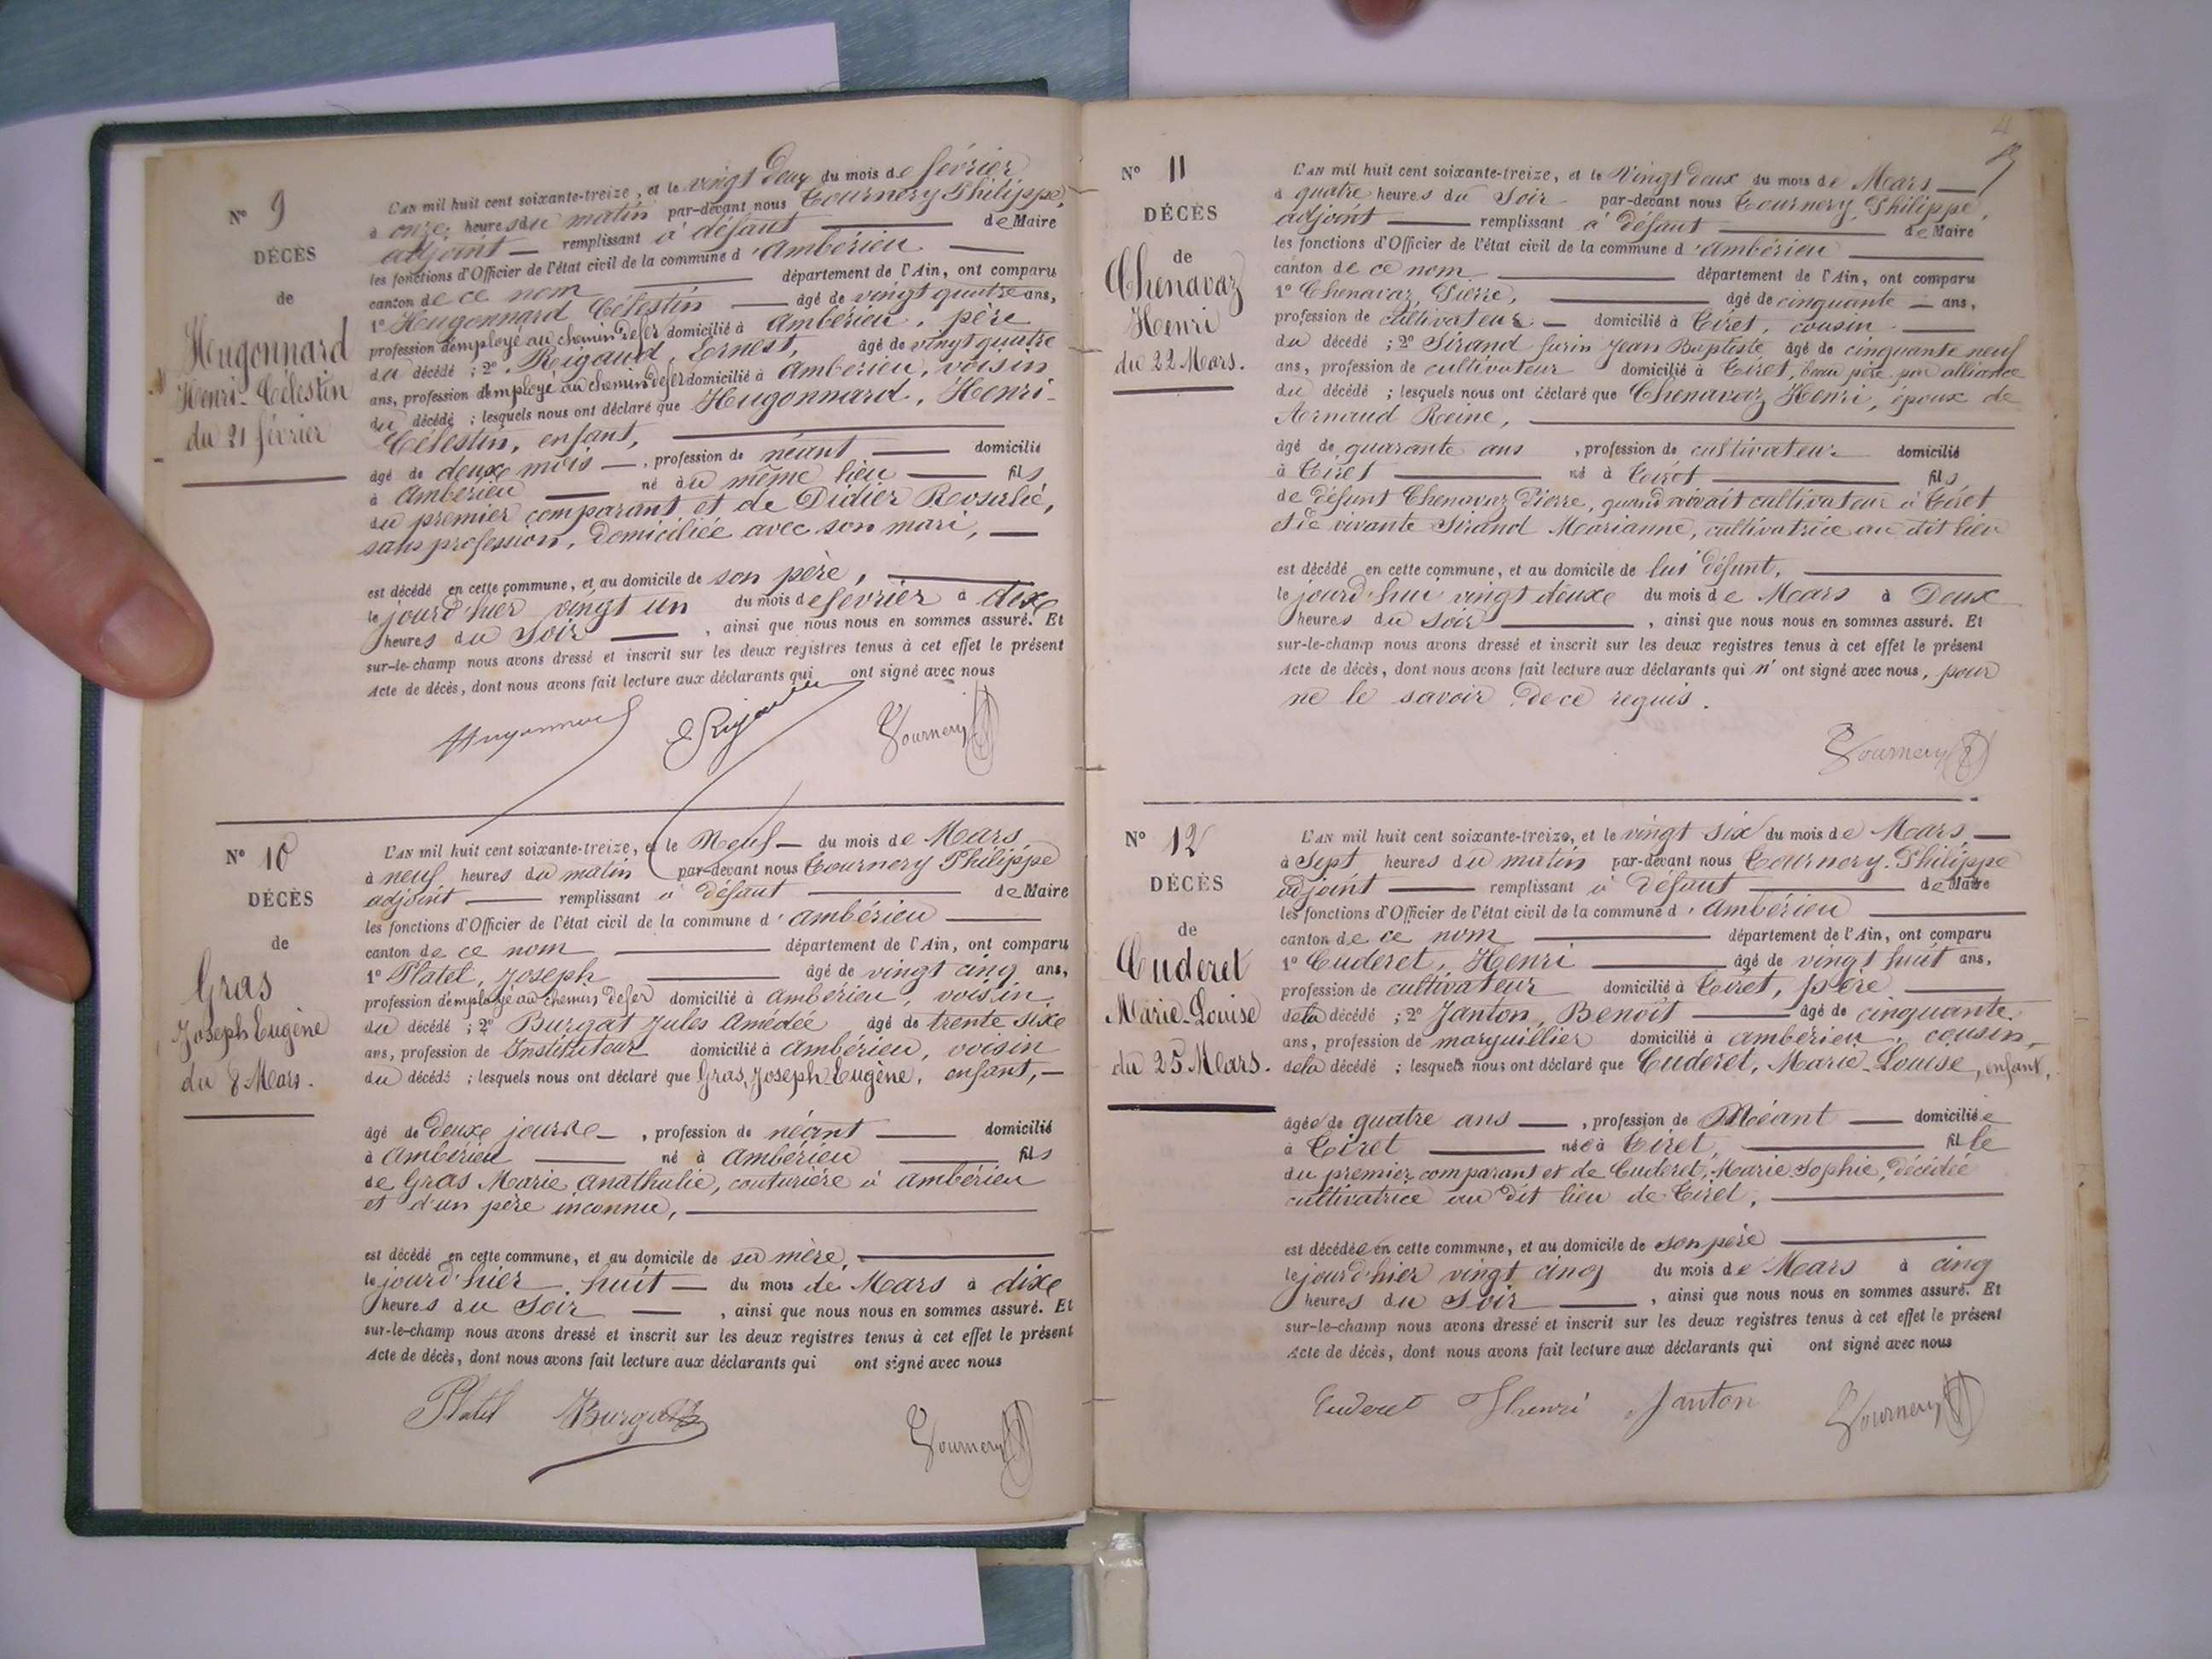 N° 9
DÉCÈS
de
Hugonnard
Henri-Célestin
du 21 février
L'AN mil huit cent soixante-treize, et le vingt deux du mois de février
à onze heures du matin par-devant nous Tournery Philippe,
adjoint remplissant à défaut de Maire
les fonctions d'Officier de l'état civil de la commune d'Ambérieu
canton de ce nom département de l'Ain, ont comparu
1° Hugonnard Célestin âgé de vingt quatre ans,
profession d'employé au chemin de fer domicilié à Ambérieu, père
du décédé ; 2° Rigaud, Ernest, âgé de vingt quatre
ans, profession d'employé au chemin de fer domicilié à Ambérieu, voisin
du décédé ; lesquels nous ont déclaré que Hugonnard, Henri-
Célestin, enfant,
âgé de deux mois, profession de néant domicilié
à Ambérieu né au même lieu fils
du premier comparant et de Didier Rosalie,
sans profession, domiciliée avec son mari,
est décédé en cette commune, et au domicile de son père,
le jourd'hier vingt un du mois de février à dixe
heures du soir, ainsi que nous nous en sommes assuré. Et
sur-le-champ nous avons dressé et inscrit sur les deux registres tenus à cet effet le présent
Acte de décès, dont nous avons fait lecture aux déclarants qui ont signé avec nous
Hugonnard E Rigaud Tournery
N° 10
DÉCÈS
de
Gras
Joseph Eugène
du 8 Mars.
L'AN mil huit cent soixante-treize, et le Neuf du mois de Mars
à neuf heures du matin par-devant nous Tournery Philippe
adjoint remplissant à défaut de Maire
les fonctions d'Officier de l'état civil de la commune d'Ambérieu
canton de ce nom département de l'Ain, ont comparu
1° Platel, Joseph âgé de vingt cinq ans,
profession d'employé au chemin de fer domicilié à Ambérieu, voisin
du décédé ; 2° Burgat Jules Amédée âgé de trente sixe
ans, profession de Instituteur domicilié à Ambérieu, voisin
du décédé ; lesquels nous ont déclaré que Gras, Joseph Eugène, enfant,
âgé de deuxe jours, profession de néant domicilié
à Ambérieu né à Ambérieu fils
de Gras Marie Anathalie, couturière à Ambérieu
et d'un père inconnu,
est décédé en cette commune, et au domicile de sa mère,
le jourd'hier huit du mois de Mars à dixe
heures du soir, ainsi que nous nous en sommes assuré. Et
sur-le-champ nous avons dressé et inscrit sur les deux registres tenus à cet effet le présent
Acte de décès, dont nous avons fait lecture aux déclarants qui ont signé avec nous
Platel Burgat Tournery
N° 11
DÉCÈS
de
Chenavaz
Henri
du 22 Mars.
L'AN mil huit cent soixante-treize, et le Vingt deux du mois de Mars
à quatre heures du Soir par-devant nous Tournery, Philippe,
adjoint remplissant à défaut de Maire
les fonctions d'Officier de l'état civil de la commune d'Ambérieu
canton de ce nom département de l'Ain, ont comparu
1° Chenavaz, Pierre, âgé de cinquante ans,
profession de cultivateur domicilié à Tiret, cousin
du décédé ; 2° Sirand Jurin Jean Baptiste âgé de cinquante neuf
ans, profession de cultivateur domicilié à Tiret, beau père par alliance
du décédé ; lesquels nous ont déclaré que Chenavaz Henri, époux de
Arnaud Reine,
âgé de quarante ans, profession de cultivateur domicilié
à Tiret né à Tiret fils
de défunt Chenavaz Pierre, quand vivait cultivateur à Tiret
et de vivante Sirand Marianne, cultivatrice au dit lieu
est décédé en cette commune, et au domicile de lui défunt,
le jourd'hui vingt deuxe du mois de Mars à Deux
heures du soir, ainsi que nous nous en sommes assuré. Et
sur-le-champ nous avons dressé et inscrit sur les deux registres tenus à cet effet le présent
Acte de décès, dont nous avons fait lecture aux déclarants qui n'ont signé avec nous, pour
ne le savoir de ce requis.
Tournery
N° 12
DÉCÈS
de
Cuderet
Marie-Louise
du 25 Mars.
L'AN mil huit cent soixante-treize, et le vingt six du mois de Mars
à Sept heures du matin par-devant nous Tournery Philippe
adjoint remplissant à défaut de Maire
les fonctions d'Officier de l'état civil de la commune d'Ambérieu
canton de ce nom département de l'Ain, ont comparu
1° Cuderet, Henri âgé de vingt huit ans,
profession de cultivateur domicilié à Tiret, père
de la décédé ; 2° Janton, Benoît âgé de cinquante
ans, profession de marguillier domicilié à Ambérieu, cousin
de la décédé ; lesquels nous ont déclaré que Cuderet, Marie-Louise, enfant,
âgée de quatre ans, profession de Néant domiciliée
à Tiret née à Tiret, fille
du premier comparant et de Cuderet, Marie Sophie, décédée
cultivatrice au dit lieu de Tiret,
est décédée en cette commune, et au domicile de son père
le jourd'hier vingt cinq du mois de Mars à cinq
heures du Soir, ainsi que nous nous en sommes assuré. Et
sur-le-champ nous avons dressé et inscrit sur les deux registres tenus à cet effet le présent
Acte de décès, dont nous avons fait lecture aux déclarants qui ont signé avec nous
Cuderet Henri Janton Tournery